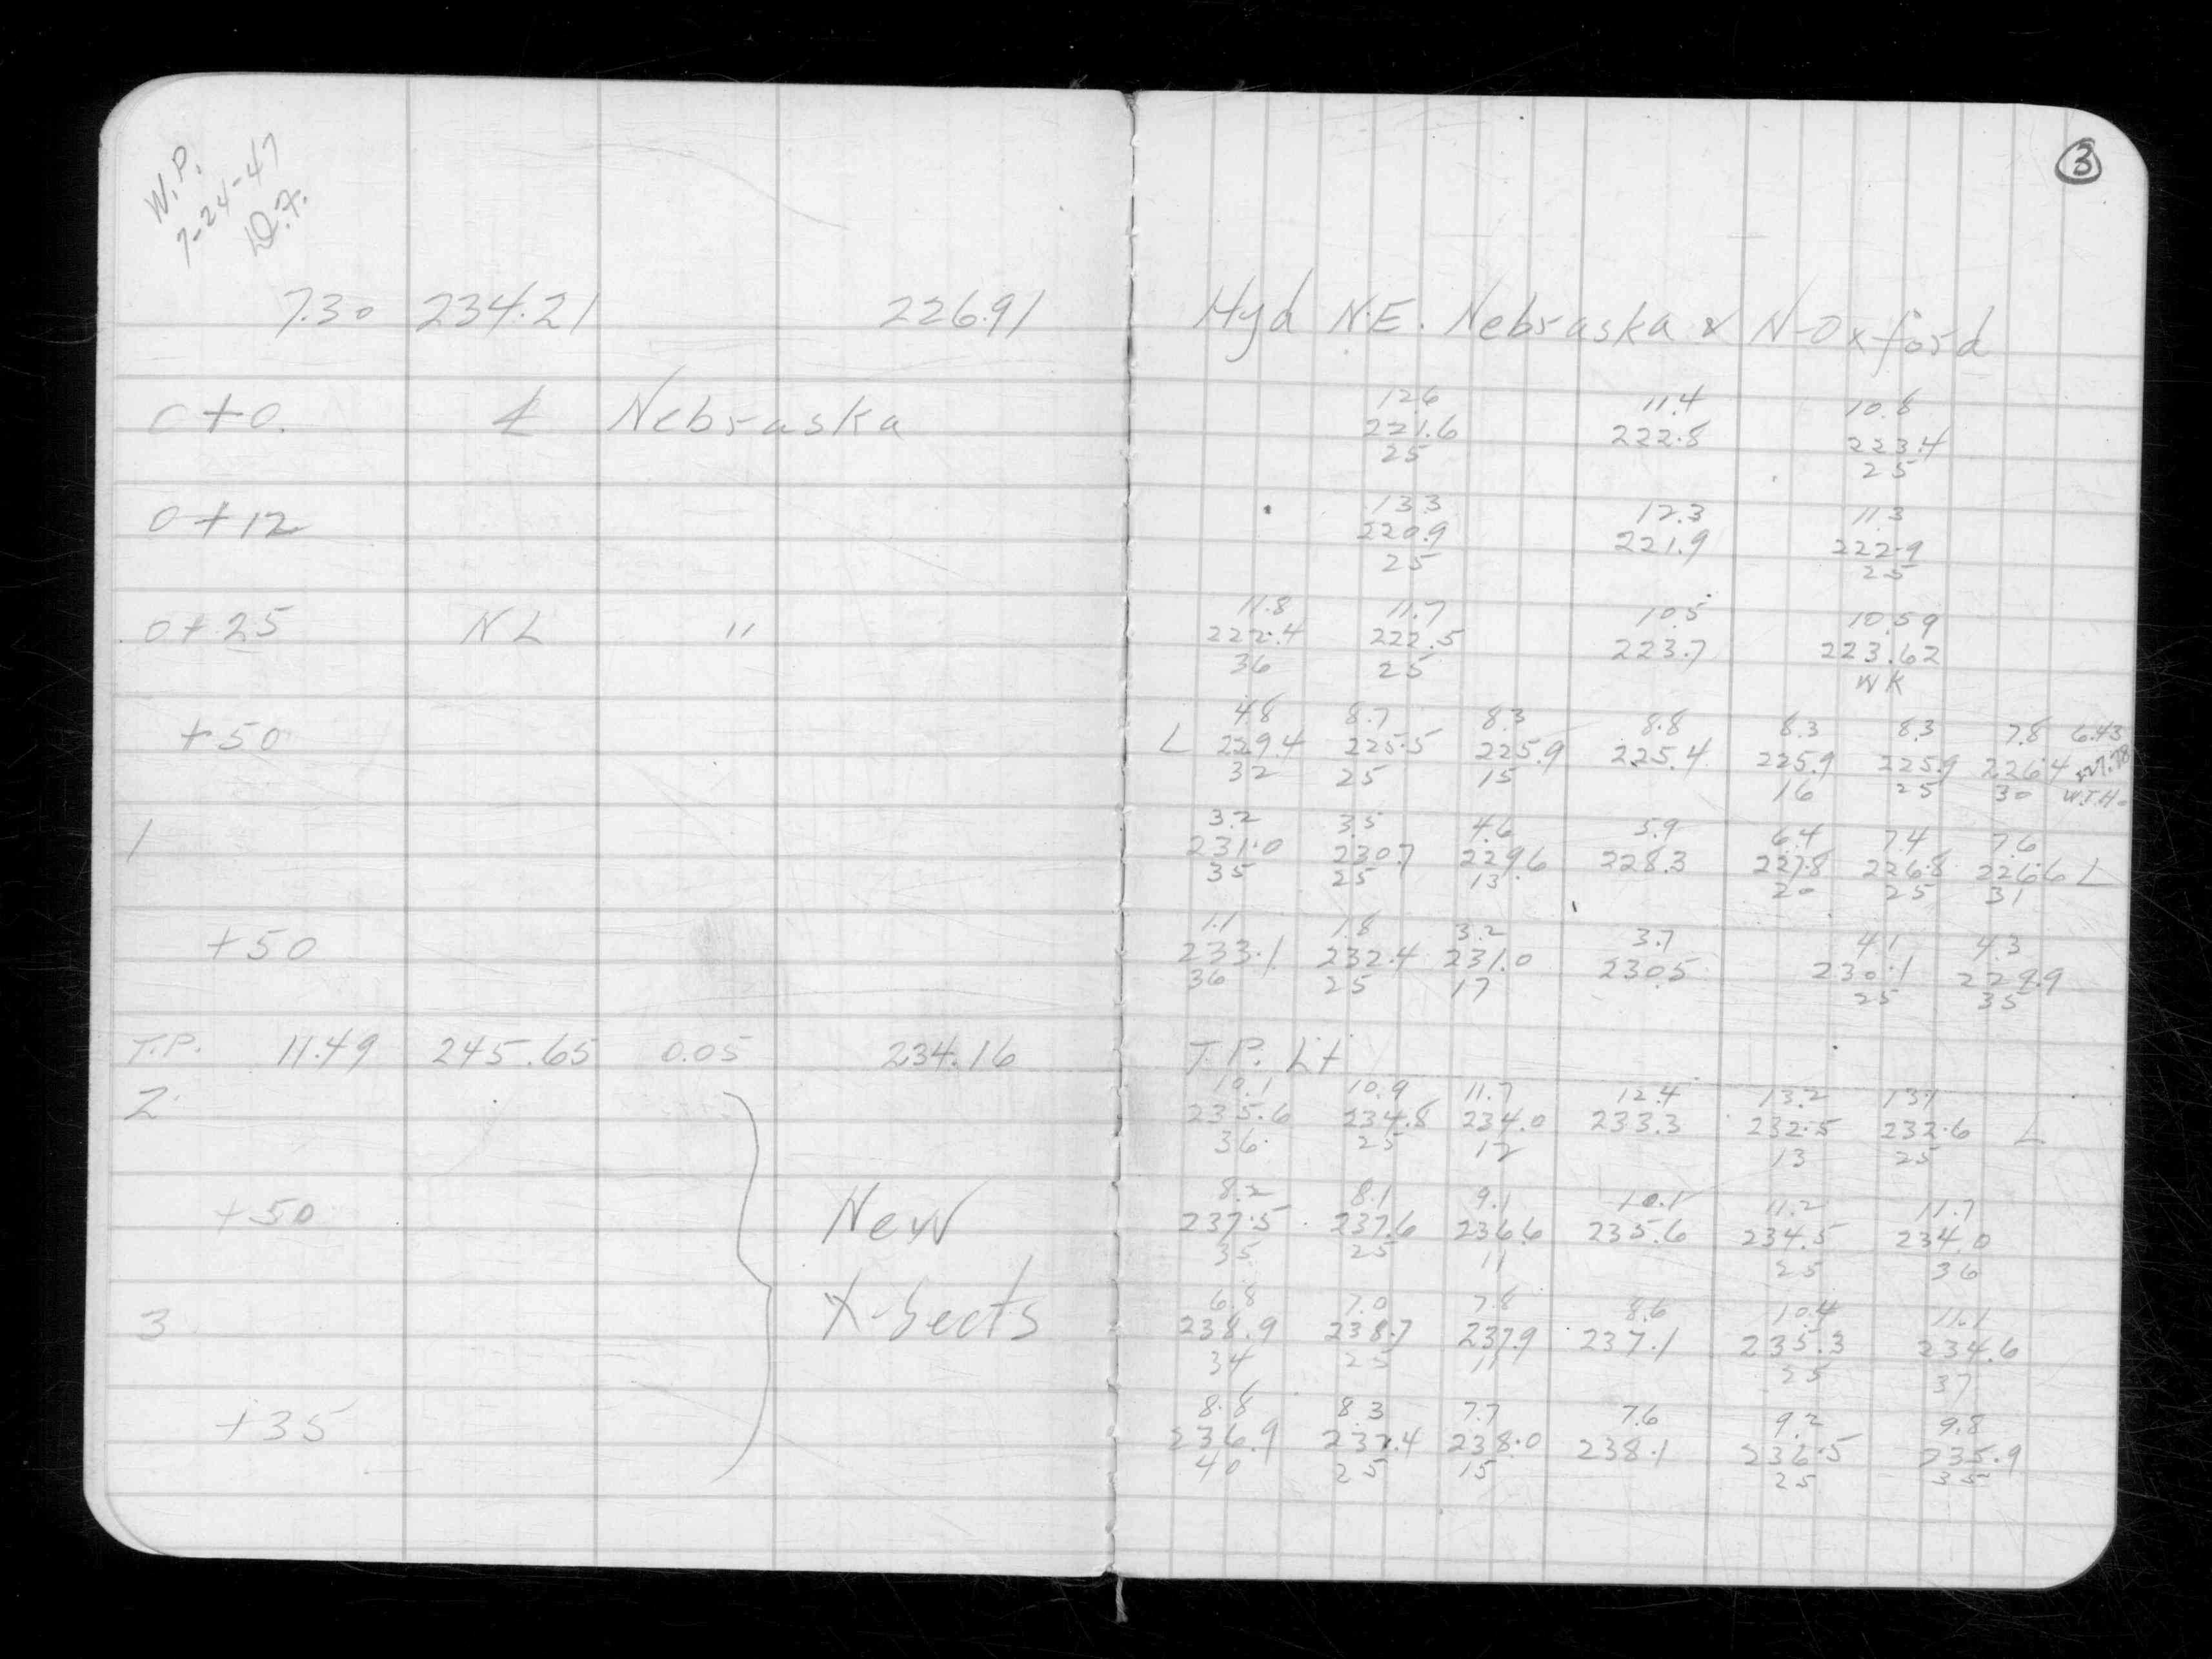 W.P.
7-24-47
D.F.
7.30 234.21 226.91
0+0. ℄ Nebraska
0+12
0+25 NL "
+50
1
+50
T.P. 11.49 245.65 0.05 234.16
2
+50 New
3 X-Sects
+35
3
Hyd N.E. Nebraska & N-Oxford
12.6 11.4 10.8
221.6 222.8 223.4
25 25
13.3 12.3 11.3
220.9 221.9 222.9
25 25
11.8 11.7 10.5 10.59
222.4 222.5 223.7 223.62
36 25 WK
4.8 8.7 8.3 8.8 8.3 8.3 7.8 6.43
L 229.4 225.5 225.9 225.4 225.9 225.9 226.4 227.78
32 25 15 16 25 30 W.T.H.
3.2 3.5 4.6 5.9 6.4 7.4 7.6
231.0 230.7 229.6 228.3 227.8 226.8 226.6 L
35 25 13 20 25 31
1.1 1.8 3.2 3.7 4.1 4.3
233.1 232.4 231.0 230.5 230.1 229.9
36 25 17 25 35
T.P. Lt
10.1 10.9 11.7 12.4 13.2 13.1
235.6 234.8 234.0 233.3 232.5 232.6 L
36 25 12 13 25
8.2 8.1 9.1 10.1 11.2 11.7
237.5 237.6 236.6 235.6 234.5 234.0
35 25 11 25 36
6.8 7.0 7.8 8.6 10.4 11.1
238.9 238.7 237.9 237.1 235.3 234.6
34 25 11 25 37
8.8 8.3 7.7 7.6 9.2 9.8
236.9 237.4 238.0 238.1 236.5 235.9
40 25 15 25 35